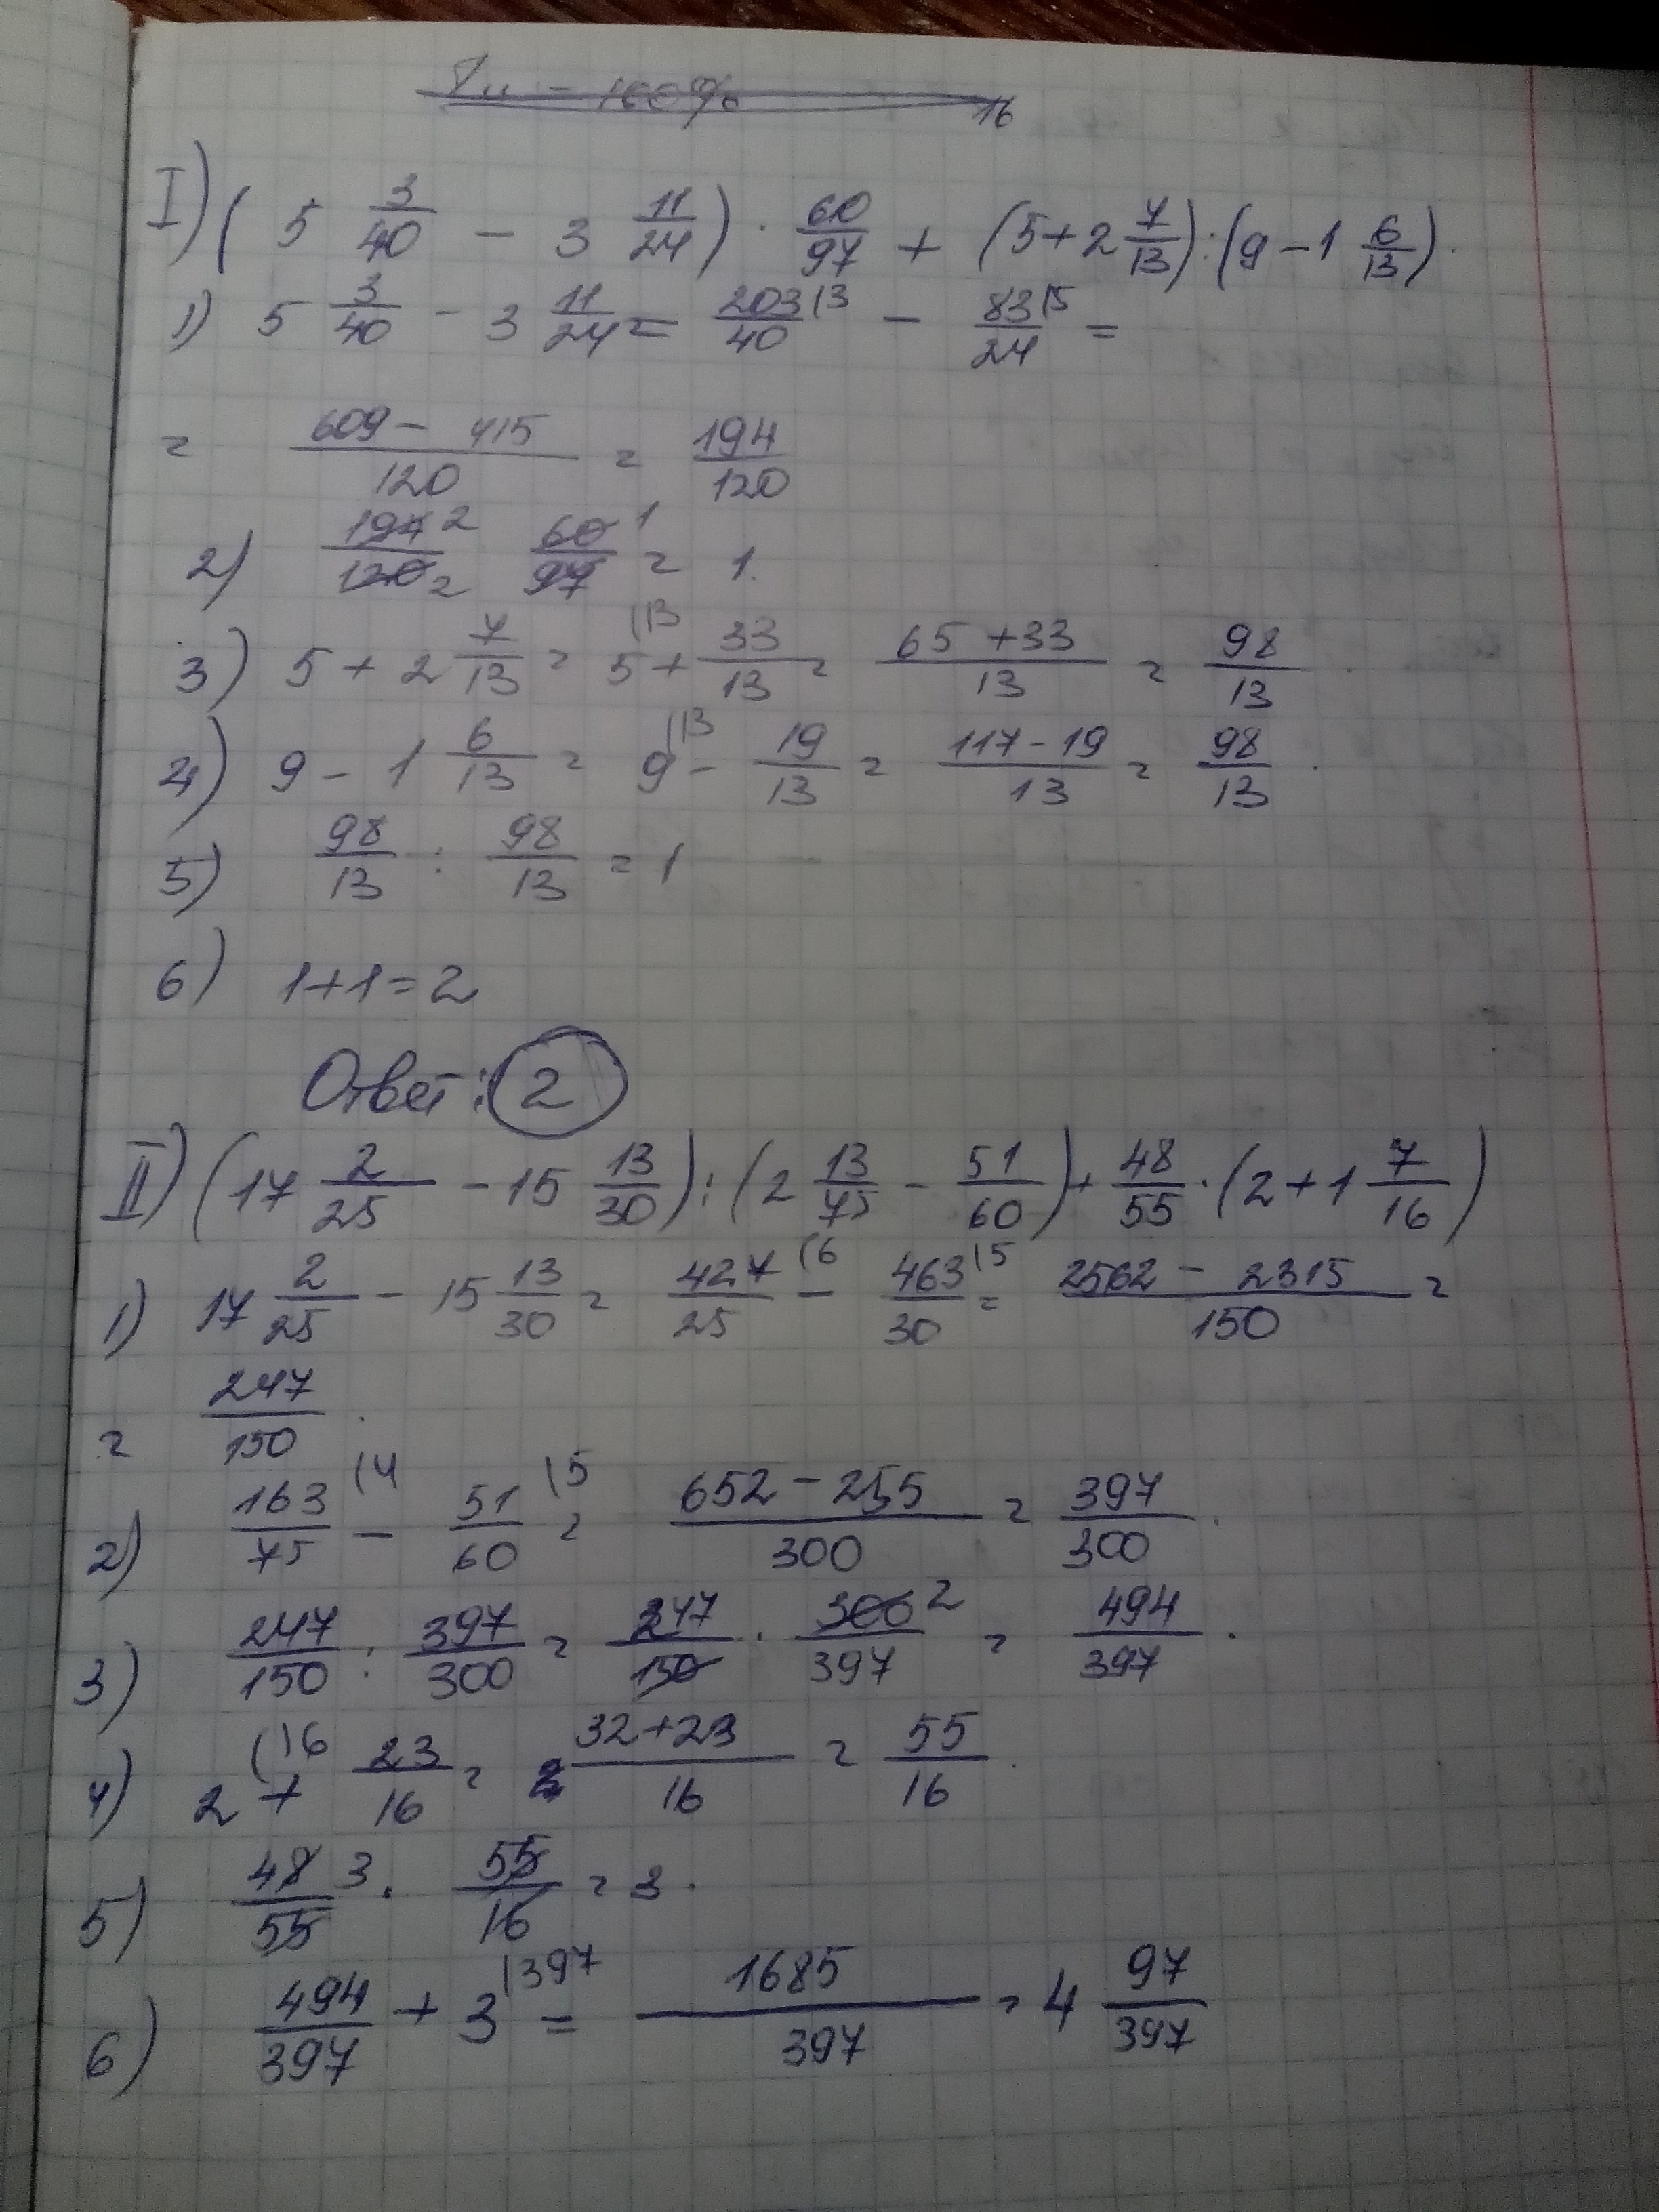 16
I) ( 5 3/40 - 3 11/24 ) · 60/97 + (5 + 2 7/13) : (9 - 1 6/13).
1) 5 3/40 - 3 11/24 = 203/40 (3 - 83/24 (5 =
= (609 - 415)/120 = 194/120
2) 194/120 2 2 60/97 1 = 1.
3) 5 + 2 7/13 = 5 (13 + 33/13 = (65 + 33)/13 = 98/13.
4) 9 - 1 6/13 = 9 (13 - 19/13 = (117 - 19)/13 = 98/13.
5) 98/13 : 98/13 = 1
6) 1 + 1 = 2
Ответ: 2
II) (17 2/25 - 15 13/30) : (2 13/75 - 51/60) + 48/55 · (2 + 1 7/16)
1) 17 2/25 - 15 13/30 = 427/25 (6 - 463/30 (5 = (2562 - 2315)/150 =
= 247/150.
2) 163/75 (4 - 51/60 (5 = (652 - 255)/300 = 397/300.
3) 247/150 : 397/300 = 247/150 · 300/397 2 = 494/397.
4) 2 (16 + 23/16 = (32 + 23)/16 = 55/16.
5) 48/55 3 · 55/16 = 3.
6) 494/397 + 3 (397 = 1685/397 = 4 97/397